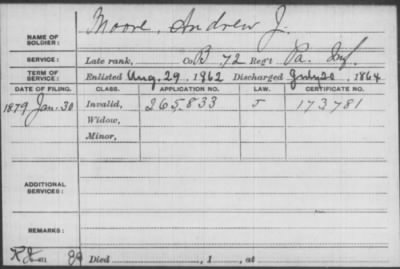 NAME OF SOLDIER: Moore, Andrew J.
SERVICE: Late rank, Co B 72 Reg't Pa. Inf.
TERM OF SERVICE: Enlisted Aug. 29, 1862 Discharged July 20, 1864
DATE OF FILING. CLASS. APPLICATION NO. LAW. CERTIFICATE NO.
1879 Jan. 30 Invalid, 265.833 J 173781
Widow,
Minor,
ADDITIONAL SERVICES:
REMARKS:
Died , 1 , at